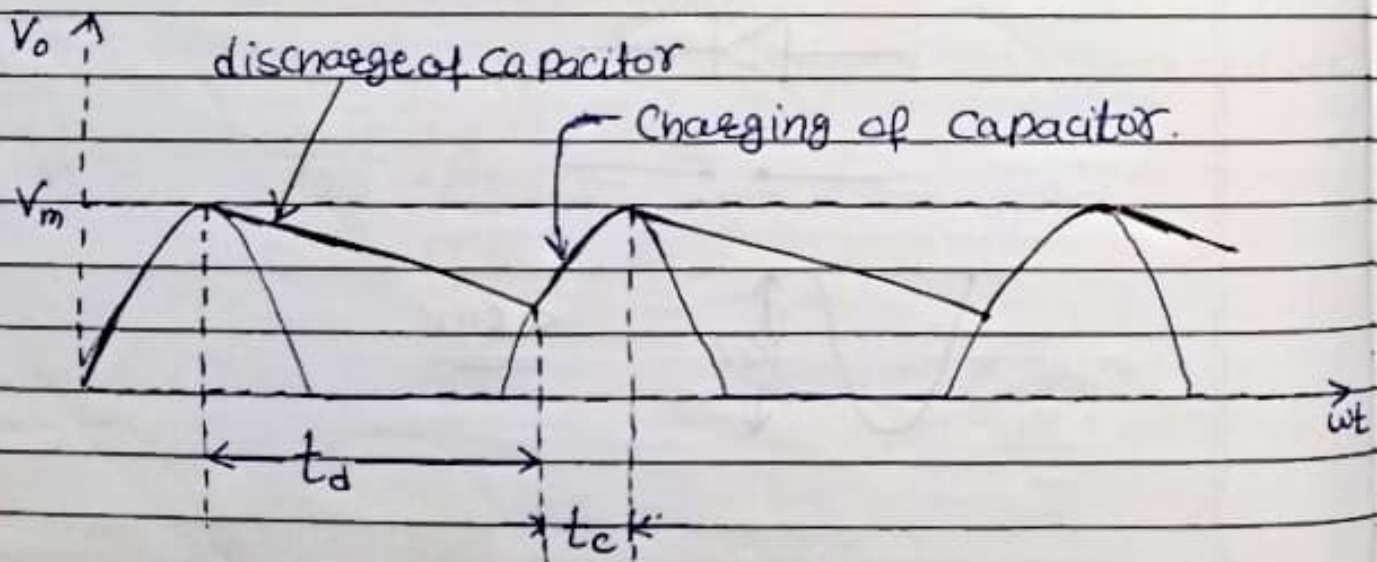 V₀
discharge of capacitor
Charging of capacitor.
Vₘ
ωt
t_d
t_c